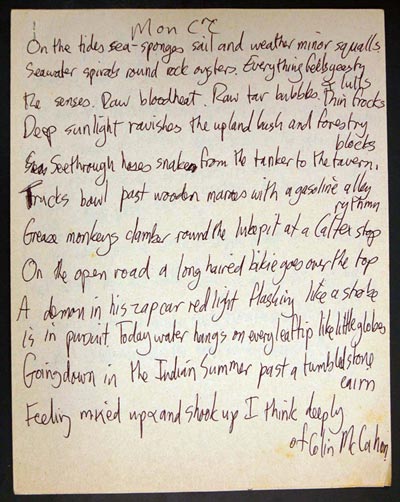 Mon
On the tides sea-sponges sail and weather minor squalls
Seawater spirals round rock oysters. Everything feels yeasty
& lulls
the senses. Raw bloodheat. Raw tar bubbles. Thin tracks
Deep sunlight ravishes the upland bush and forestry
blocks
Seethrough hoses snake from the tanker to the tavern,
Trucks bawl past wooden maraes with a gasoline alley
rythmn
Grease monkeys clamber round the lubepit at a Caltex stop
On the open road a long haired bikie goes over the top
A demon in his zapcar red light flashing like a strobe
is in pursuit. Today water hangs on every leaftip like little globes
Going down in the Indian Summer past a tumbled stone
cairn
Feeling mixed up and shook up I think deeply
of Colin McCahon